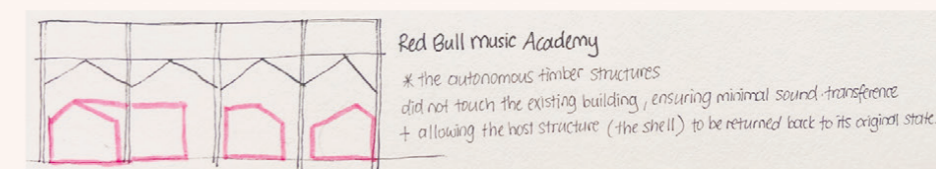 Red Bull music Academy
* the autonomous timber structures
did not touch the existing building, ensuring minimal sound transference
+ allowing the host structure (the shell) to be returned back to its original state.